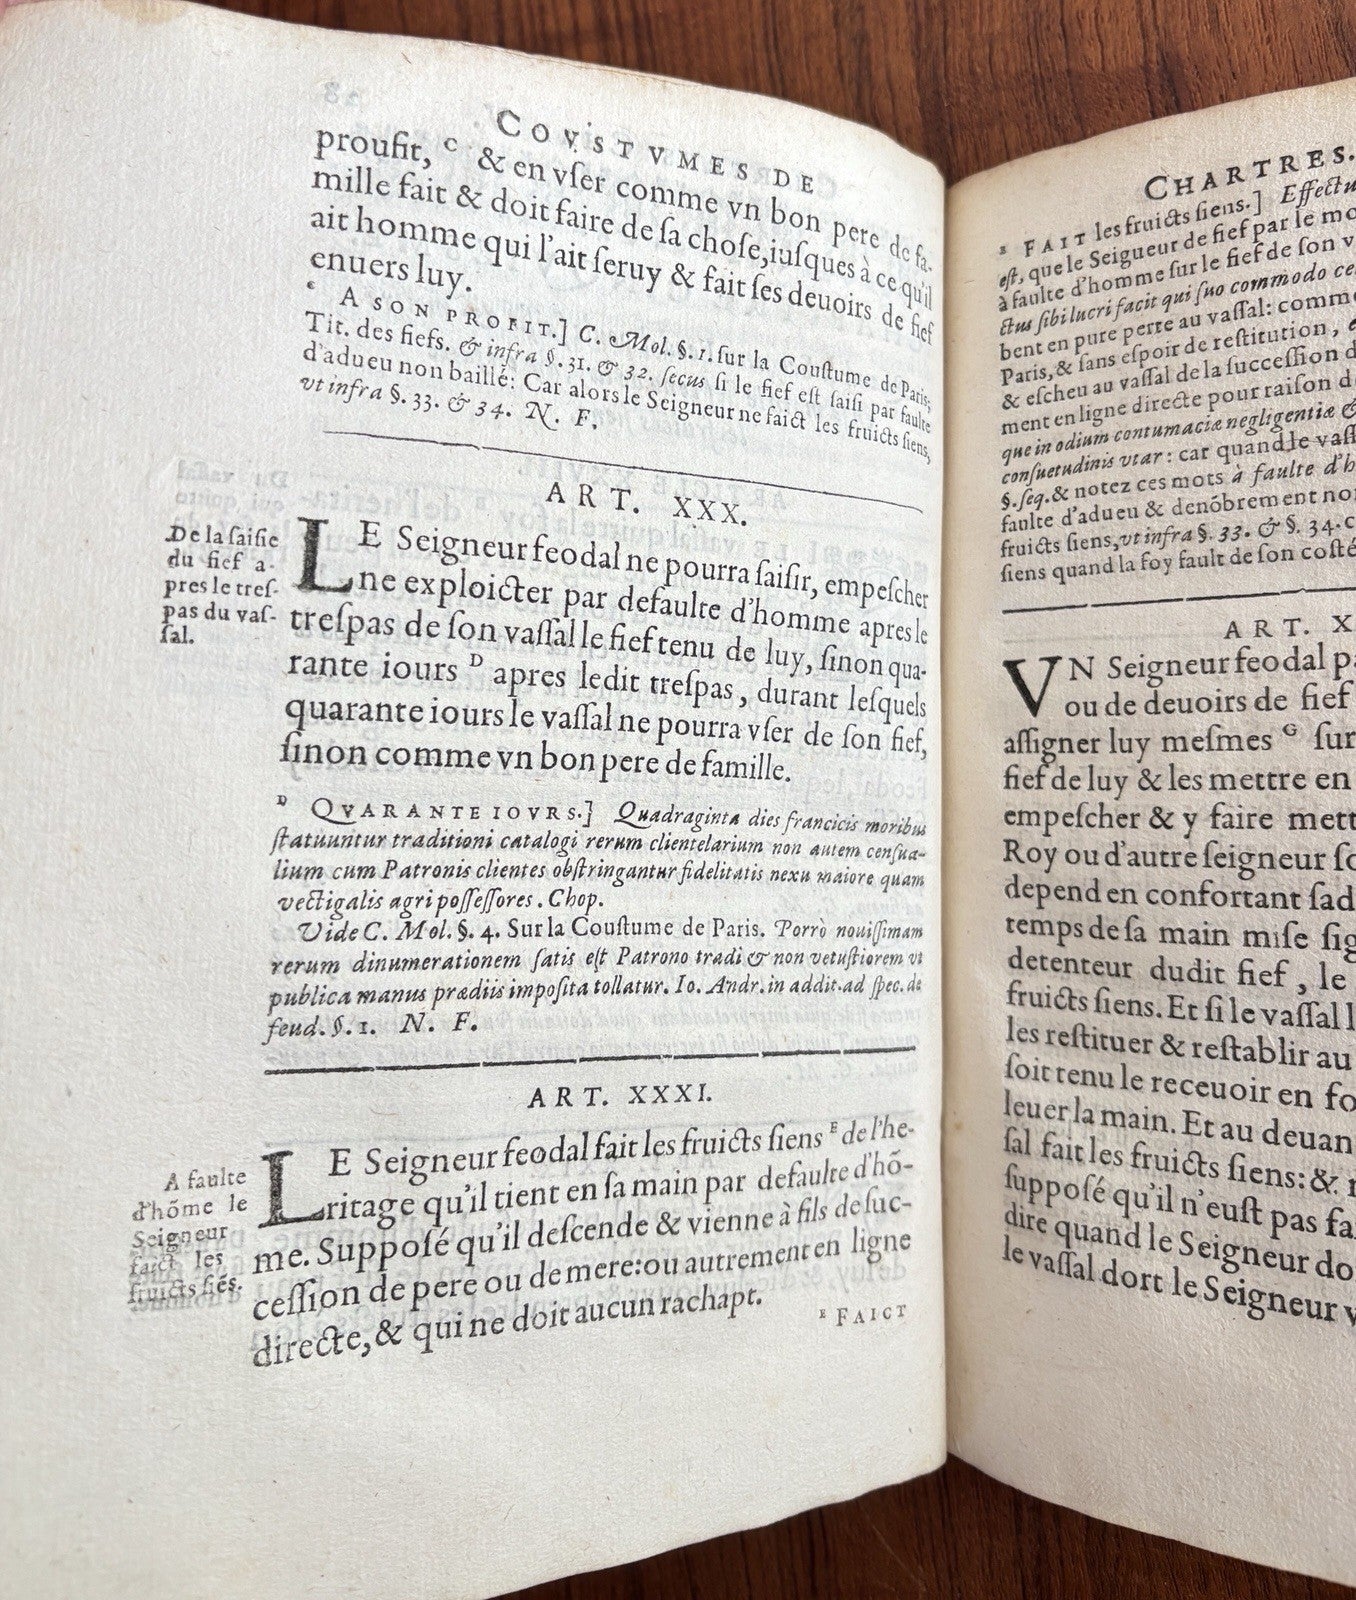 COVSTVMES DE
proufit, C & en vſer comme vn bon pere de fa-
mille fait & doit faire de ſa choſe, iuſques à ce qu'il
ait homme qui l'ait ſeruy & fait ſes deuoirs de fief
enuers luy.
C A SON PROFIT.] C. Mol. §. 1. ſur la Couſtume de Paris,
Tit. des fiefs. & infra §. 31. & 32. ſecus ſi le fief eſt ſaiſi par faulte
d'adueu non baillé: Car alors le Seigneur ne faict les fruicts ſiens,
vt infra §. 33. & 34. N. F.
ART. XXX.
De la ſaiſie
du fief a-
pres le treſ-
pas du vaſ-
ſal.
LE Seigneur feodal ne pourra ſaiſir, empeſcher
ne exploicter par defaulte d'homme apres le
treſpas de ſon vaſſal le fief tenu de luy, ſinon qua-
rante iours D apres ledit treſpas, durant leſquels
quarante iours le vaſſal ne pourra vſer de ſon fief,
ſinon comme vn bon pere de famille.
D QVARANTE IOVRS.] Quadraginta dies francicis moribus
ſtatuuntur traditioni catalogi rerum clientelarium non autem cenſua-
lium cum Patronis clientes obſtringantur fidelitatis nexu maiore quam
vectigalis agri poſſeſſores. Chop.
Vide C. Mol. §. 4. Sur la Couſtume de Paris. Porrò nouiſſimam
rerum dinumerationem ſatis eſt Patrono tradi & non vetuſtiorem vt
publica manus prædiis impoſita tollatur. Io. Andr. in addit. ad ſpec. de
feud. §. 1. N. F.
ART. XXXI.
A faulte
d'hõme le
Seigneur
faict les
fruicts ſiés.
LE Seigneur feodal fait les fruicts ſiens E de l'he-
ritage qu'il tient en ſa main par defaulte d'hõ-
me. Suppoſé qu'il deſcende & vienne à fils de ſuc-
ceſſion de pere ou de mere: ou autrement en ligne
directe, & qui ne doit aucun rachapt.
E FAICT
CHARTRES.
E FAIT les fruicts ſiens.] Effectu
eſt, que le Seigueur de fief par le mo
à faulte d'homme ſur le fief de ſon v
ctus ſibi lucri facit qui ſuo commodo ce
bent en pure perte au vaſſal: comm
Paris, & ſans eſpoir de reſtitution, e
& eſcheu au vaſſal de la ſucceſſion d
ment en ligne directe pour raiſon d
que in odium contumaciæ negligentiæ &
conſuetudinis vtar: car quand le vaſſ
§. ſeq. & notez ces mots à faulte d'h
faulte d'adueu & denõbrement no
fruicts ſiens, vt infra §. 33. & §. 34. c
ſiens quand la foy fault de ſon coſté
ART. X
VN Seigneur feodal pa
ou de deuoirs de fief
aſſigner luy meſmes G ſur
fief de luy & les mettre en
empeſcher & y faire mett
Roy ou d'autre ſeigneur ſo
depend en confortant ſad
temps de ſa main miſe ſig
detenteur dudit fief, le
fruicts ſiens. Et ſi le vaſſal l
les reſtituer & reſtablir au
ſoit tenu le receuoir en fo
leuer la main. Et au deuan
ſal fait les fruicts ſiens: & r
ſuppoſé qu'il n'euſt pas fa
dire quand le Seigneur do
le vaſſal dort le Seigneur v